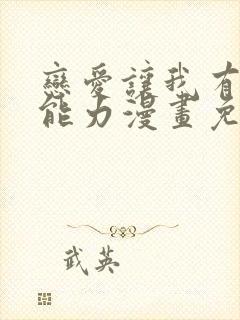 戀愛讓我有
能力漫畫免
武英